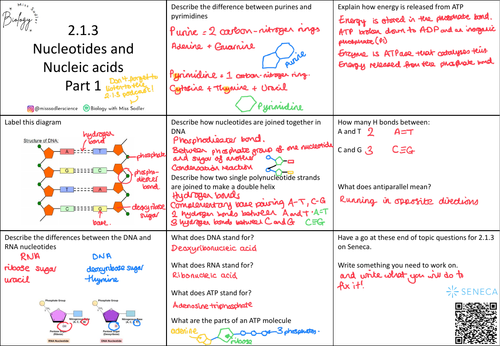 Miss Sadler
Biology
2.1.3
Nucleotides and
Nucleic acids
Part 1
Don't forget to
listen to the
2.1.3 podcast!
@missadlerscience
Biology with Miss Sadler
Describe the difference between purines and
pyrimidines
Purine = 2 carbon-nitrogen rings
Adenine + Guanine
Purine
Pyrimidine = 1 carbon-nitrogen ring.
Cytosine + Thymine + Uracil
Pyrimidine
Explain how energy is released from ATP
Energy is stored in the phosphate bond.
ATP broken down to ADP and an inorganic
phosphate (Pi)
Enzyme is ATPase that catalyses this
Energy released from the phosphate bond
Label this diagram
hydrogen
bond
Structure of DNA:
A
T
T
A
C
G
G
C
phosphate
phospho-
diester
bond
deoxyribose
sugar
base
Describe how nucleotides are joined together in
DNA
Phosphodiester bond.
Between phosphate group of one nucleotide
and sugar of another
Condensation reaction
Describe how two single polynucleotide strands
are joined to make a double helix
Hydrogen bonds
Complementary base pairing A-T, C-G
2 hydrogen bonds between A and T A=T
3 hydrogen bonds between C and G C≡G
How many H bonds between:
A and T 2 A=T
C and G 3 C≡G
What does antiparallel mean?
Running in opposite directions
Describe the differences between the DNA and
RNA nucleotides
RNA
ribose sugar
uracil
DNA
deoxyribose sugar
thymine
Phosphate Group
Phosphate Group
RNA Nucleotide
DNA Nucleotide
What does DNA stand for?
Deoxyribonucleic acid
What does RNA stand for?
Ribonucleic acid
What does ATP stand for?
Adenosine triphosphate
What are the parts of an ATP molecule
adenine
3 phosphates
ribose
Have a go at these end of topic questions for 2.1.3
on Seneca.
Write something you need to work on.
and write what you've do to
fix it!
SENECA